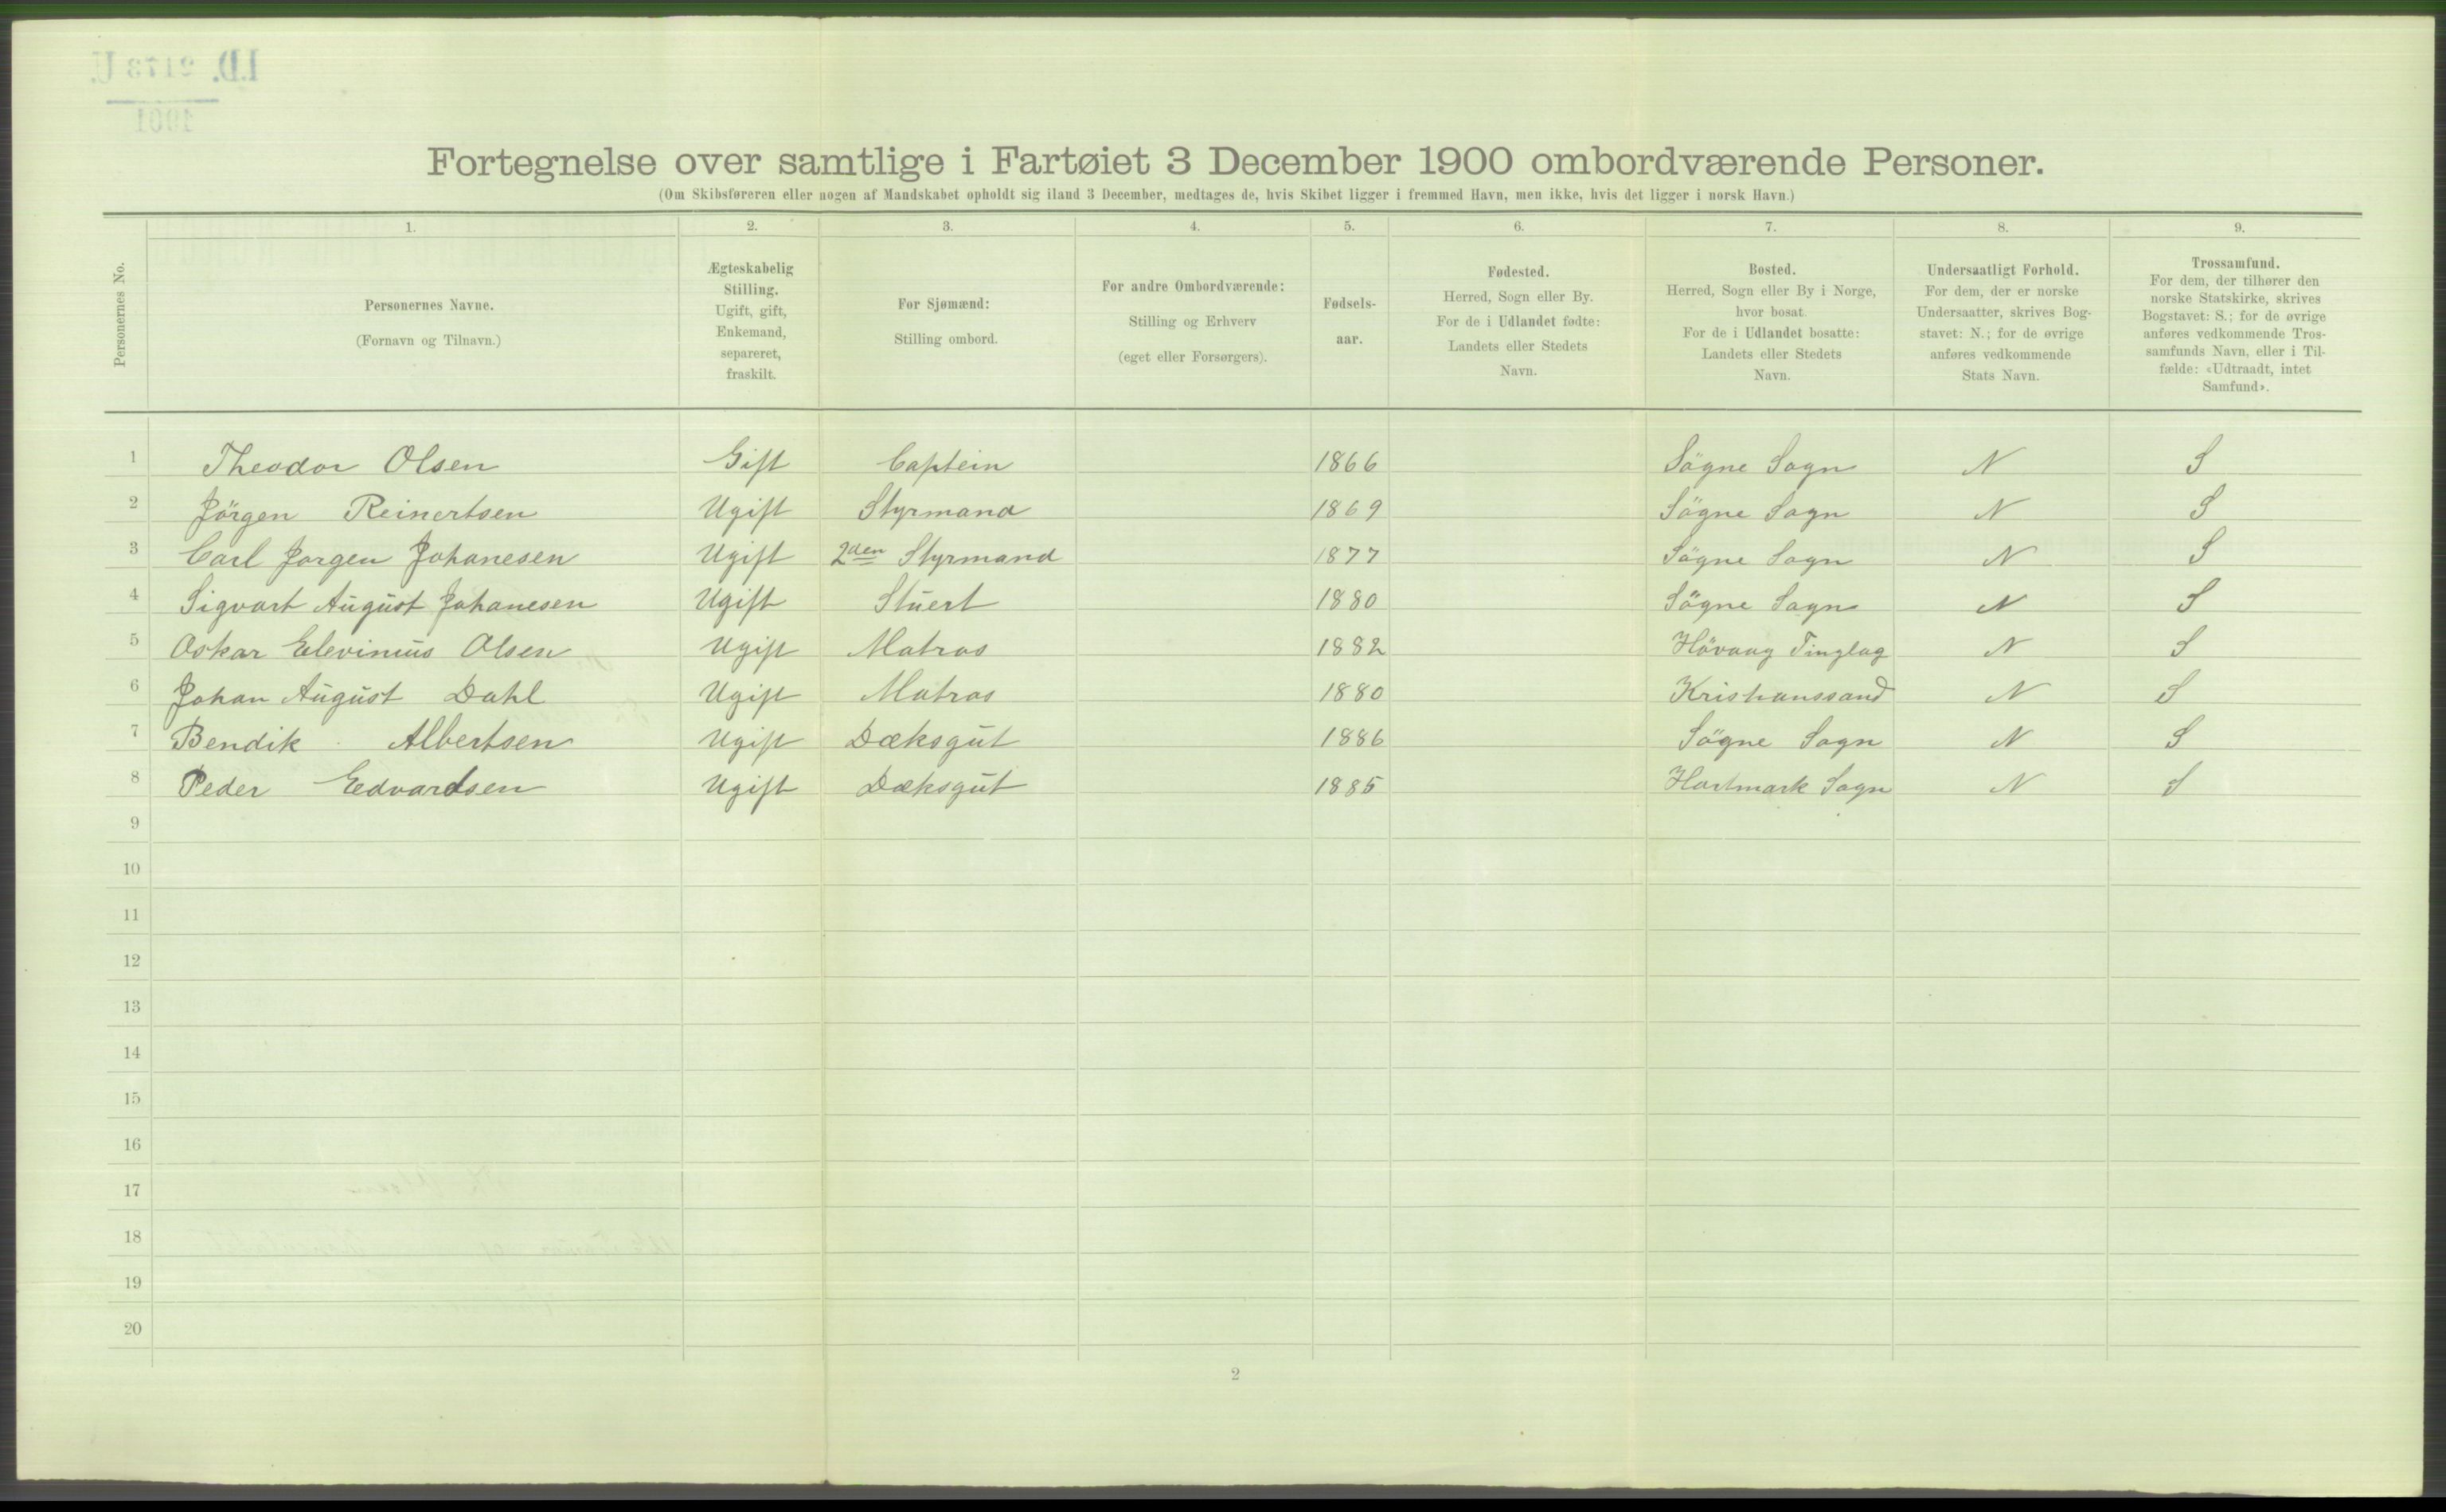 I.D. 2173 U.
1901
Fortegnelse over samtlige i Fartøiet 3 December 1900 ombordværende Personer.
(Om Skibsføreren eller nogen af Mandskabet opholdt sig iland 3 December, medtages de, hvis Skibet ligger i fremmed Havn, men ikke, hvis det ligger i norsk Havn.)
Personernes No.
1.
Personernes Navne.
(Fornavn og Tilnavn.)
2.
Ægteskabelig
Stilling.
Ugift, gift,
Enkemand,
separeret,
fraskilt.
3.
For Sjømænd:
Stilling ombord.
4.
For andre Ombordværende:
Stilling og Erhverv
(eget eller Forsørgers).
5.
Fødsels-
aar.
6.
Fødested.
Herred, Sogn eller By.
For de i Udlandet fødte:
Landets eller Stedets
Navn.
7.
Bosted.
Herred, Sogn eller By i Norge,
hvor bosat.
For de i Udlandet bosatte:
Landets eller Stedets
Navn.
8.
Undersaatligt Forhold.
For dem, der er norske
Undersaatter, skrives Bog-
stavet: N.; for de øvrige
anføres vedkommende
Stats Navn.
9.
Trossamfund.
For dem, der tilhører den
norske Statskirke, skrives
Bogstavet: S.; for de øvrige
anføres vedkommende Tros-
samfunds Navn, eller i Til-
fælde: «Udtraadt, intet
Samfund».
1 Theodor Olsen Gift Captein 1866 Sögne Sogn N S
2 Jörgen Reinertsen Ugift Styrmand 1869 Sögne Sogn N S
3 Carl Jorgen Johanesen Ugift 2den Styrmand 1877 Sögne Sogn N S
4 Sigvart August Johanesen Ugift Stuert 1880 Sögne Sogn N S
5 Oskar Elevinius Olsen Ugift Matros 1882 Hövaag Tinglag N S
6 Johan August Dahl Ugift Matros 1880 Kristianssand N S
7 Bendik Albertsen Ugift Dæksgut 1886 Sögne Sogn N S
8 Peder Eedvardsen Ugift Dæksgut 1885 Hartmark Sogn N S
9
10
11
12
13
14
15
16
17
18
19
20
2